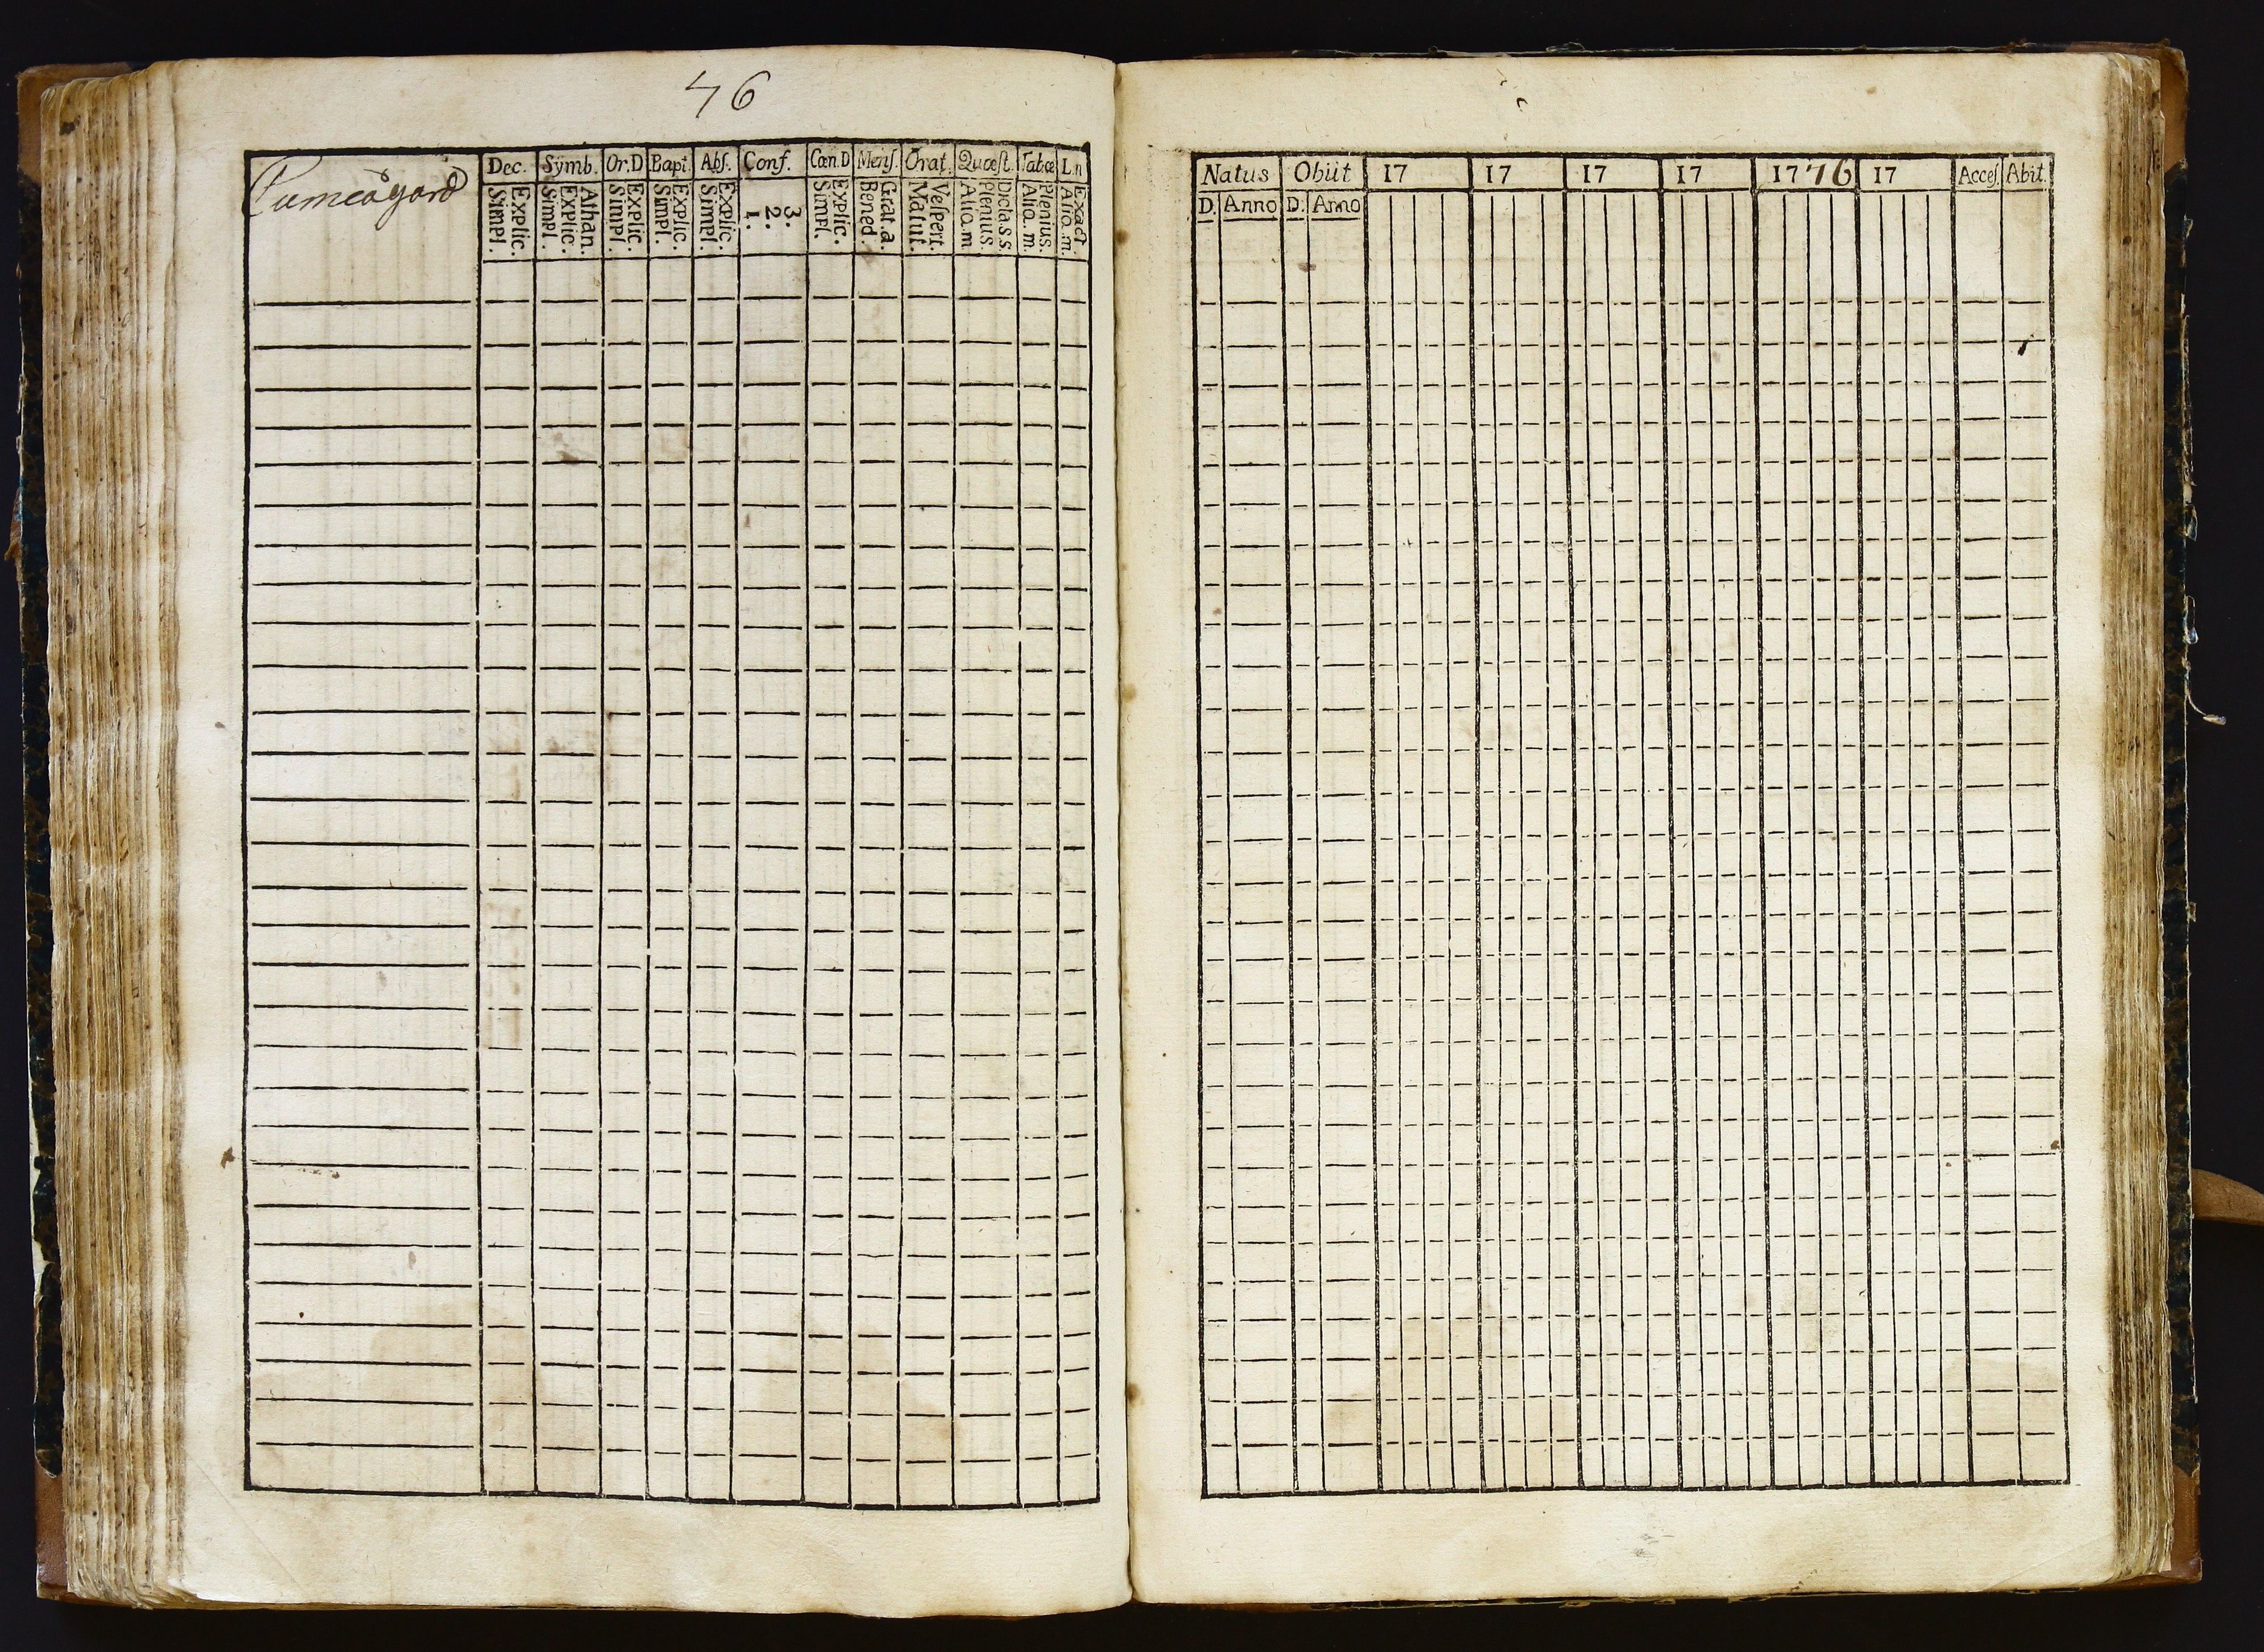 46
Cumeågård
Dec. Sÿmb. Or.D Bapt. Abſ. Conf. Cœn.D Menſ. Orat. Quæſt. Tab.œ L.n
Explic. Simpl. Athan. Explic. Simpl. Explic. Simpl. Explic. Simpl. Explic. Simpl. 3. 2. 1. Explic. Simpl. Grat.a. Bened. Veſpert. Matut. Dicta s.s. Plenius. Aliq.m. Plenius. Aliq.m. Exact. Aliq.m.
Natus Obiit 17 17 17 17 1776 17 Acceſ. Abit.
D. Anno D. Anno